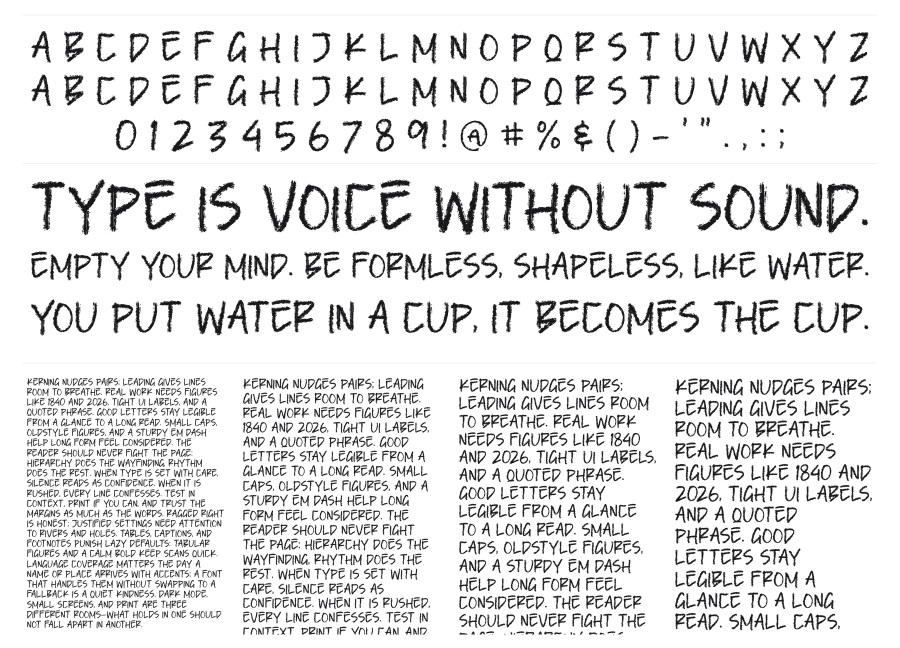 A B C D E F G H I J K L M N O P Q R S T U V W X Y Z
A B C D E F G H I J K L M N O P Q R S T U V W X Y Z
0 1 2 3 4 5 6 7 8 9 ! @ # % & ( ) - ' " . , : ;
TYPE IS VOICE WITHOUT SOUND.
EMPTY YOUR MIND. BE FORMLESS, SHAPELESS, LIKE WATER.
YOU PUT WATER IN A CUP, IT BECOMES THE CUP.
KERNING NUDGES PAIRS; LEADING GIVES LINES
ROOM TO BREATHE. REAL WORK NEEDS FIGURES
LIKE 1840 AND 2026, TIGHT UI LABELS, AND A
QUOTED PHRASE. GOOD LETTERS STAY LEGIBLE
FROM A GLANCE TO A LONG READ. SMALL CAPS,
OLDSTYLE FIGURES, AND A STURDY EM DASH
HELP LONG FORM FEEL CONSIDERED. THE
READER SHOULD NEVER FIGHT THE PAGE:
HIERARCHY DOES THE WAYFINDING, RHYTHM
DOES THE REST. WHEN TYPE IS SET WITH CARE,
SILENCE READS AS CONFIDENCE. WHEN IT IS
RUSHED, EVERY LINE CONFESSES. TEST IN
CONTEXT, PRINT IF YOU CAN, AND TRUST THE
MARGINS AS MUCH AS THE WORDS. RAGGED RIGHT
IS HONEST; JUSTIFIED SETTINGS NEED ATTENTION
TO RIVERS AND HOLES. TABLES, CAPTIONS, AND
FOOTNOTES PUNISH LAZY DEFAULTS: TABULAR
FIGURES AND A CALM BOLD KEEP SCANS QUICK.
LANGUAGE COVERAGE MATTERS THE DAY A
NAME OR PLACE ARRIVES WITH ACCENTS: A FONT
THAT HANDLES THEM WITHOUT SWAPPING TO A
FALLBACK IS A QUIET KINDNESS. DARK MODE,
SMALL SCREENS, AND PRINT ARE THREE
DIFFERENT ROOMS—WHAT HOLDS IN ONE SHOULD
NOT FALL APART IN ANOTHER.
KERNING NUDGES PAIRS; LEADING
GIVES LINES ROOM TO BREATHE.
REAL WORK NEEDS FIGURES LIKE
1840 AND 2026, TIGHT UI LABELS,
AND A QUOTED PHRASE. GOOD
LETTERS STAY LEGIBLE FROM A
GLANCE TO A LONG READ. SMALL
CAPS, OLDSTYLE FIGURES, AND A
STURDY EM DASH HELP LONG
FORM FEEL CONSIDERED. THE
READER SHOULD NEVER FIGHT
THE PAGE: HIERARCHY DOES THE
WAYFINDING, RHYTHM DOES THE
REST. WHEN TYPE IS SET WITH
CARE, SILENCE READS AS
CONFIDENCE. WHEN IT IS RUSHED,
EVERY LINE CONFESSES. TEST IN
CONTEXT, PRINT IF YOU CAN, AND
KERNING NUDGES PAIRS;
LEADING GIVES LINES ROOM
TO BREATHE. REAL WORK
NEEDS FIGURES LIKE 1840
AND 2026, TIGHT UI LABELS,
AND A QUOTED PHRASE.
GOOD LETTERS STAY
LEGIBLE FROM A GLANCE
TO A LONG READ. SMALL
CAPS, OLDSTYLE FIGURES,
AND A STURDY EM DASH
HELP LONG FORM FEEL
CONSIDERED. THE READER
SHOULD NEVER FIGHT THE
PAGE: HIERARCHY DOES
KERNING NUDGES PAIRS;
LEADING GIVES LINES
ROOM TO BREATHE.
REAL WORK NEEDS
FIGURES LIKE 1840 AND
2026, TIGHT UI LABELS,
AND A QUOTED
PHRASE. GOOD
LETTERS STAY
LEGIBLE FROM A
GLANCE TO A LONG
READ. SMALL CAPS,